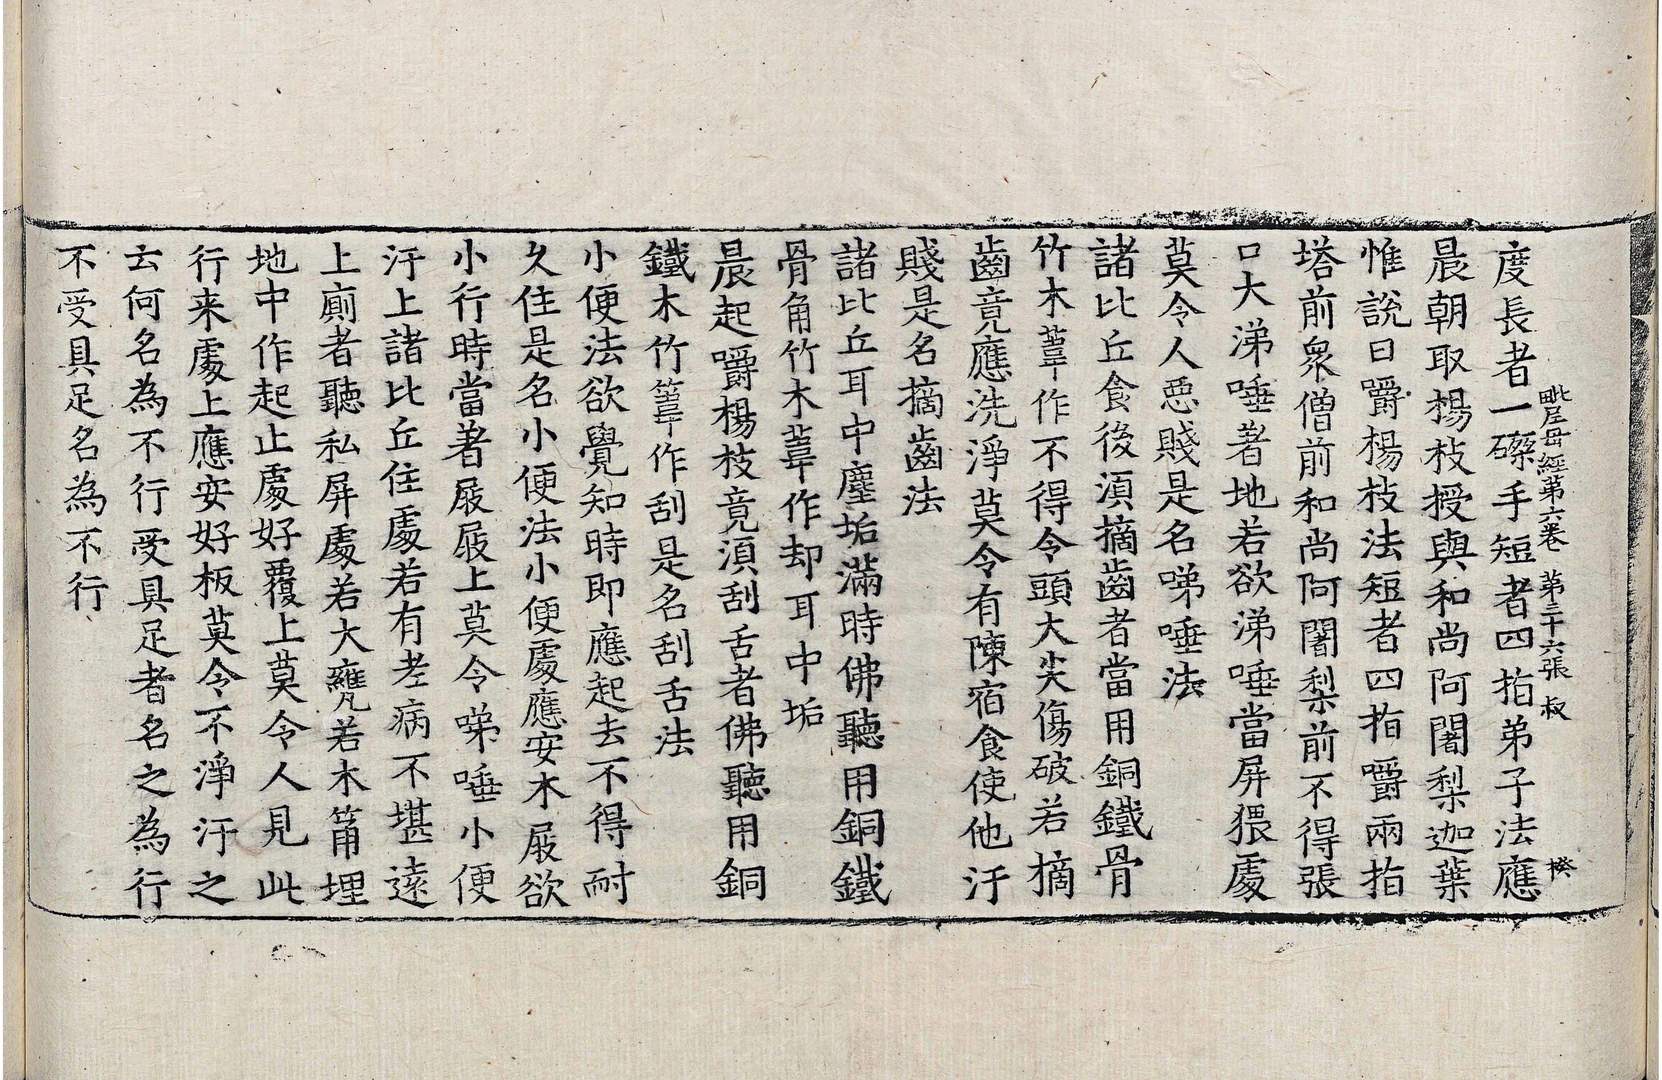 毗尼毋經第六卷 第三十六張 叔
度長者一磔手短者四指弟子法應
晨朝取楊枝授與和尚阿闍梨迦葉
惟說曰嚼楊枝法短者四指嚼兩指
塔前衆僧前和尚阿闍梨前不得張
口大涕唾著地若欲涕唾當屏猥處
莫令人惡賤是名涕唾法
諸比丘食後湏摘齒者當用銅鐵骨
竹木葦作不得令頭大尖傷破若摘
齒竟應洗淨莫令有陳宿食使他汙
賤是名摘齒法
諸比丘耳中塵垢滿時佛聽用銅鐵
骨角竹木葦作却耳中垢
晨起嚼楊枝竟湏刮舌者佛聽用銅
鐵木竹葦作刮是名刮舌法
小便法欲覺知時即應起去不得耐
久住是名小便法小便處應安木屐欲
小行時當著屐屐上莫令涕唾小便
汙上諸比丘住處若有老病不堪遠
上廁者聽私屏處若大甕若木筩埋
地中作起止處好覆上莫令人見此
行来處上應安好板莫令不淨汙之
云何名為不行受具足者名之為行
不受具足名為不行